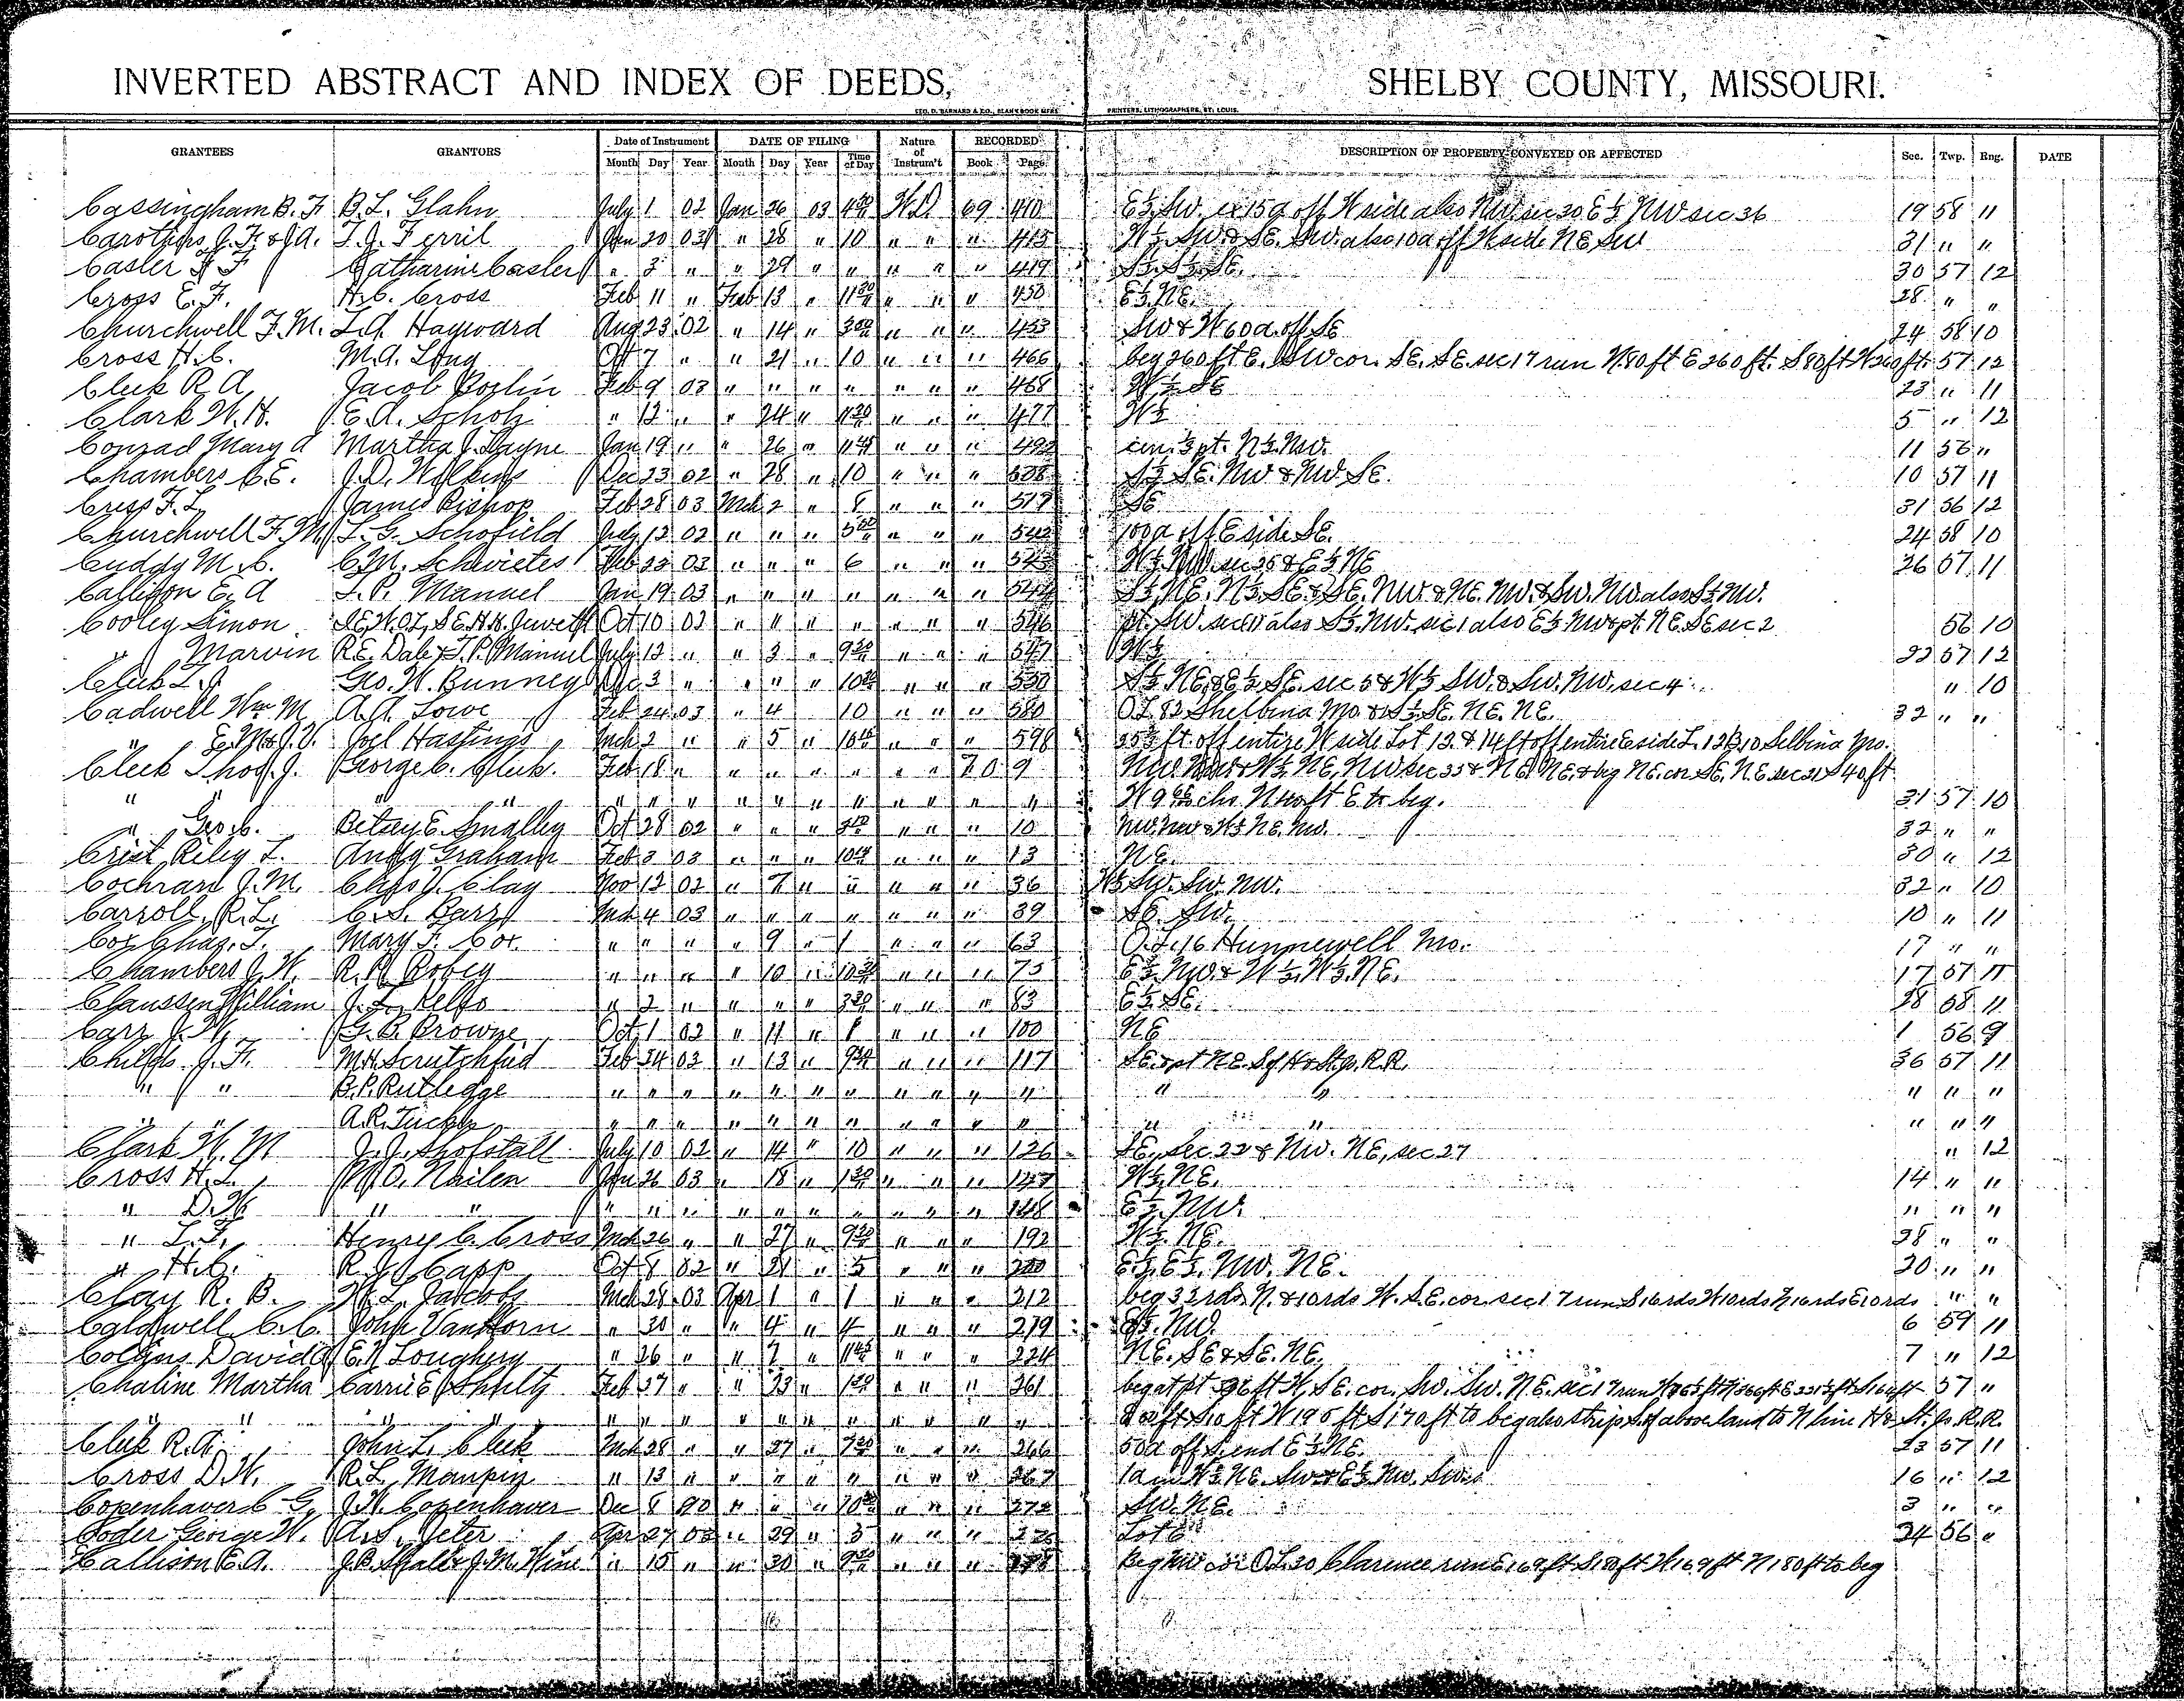 INVERTED ABSTRACT AND INDEX OF DEEDS, SHELBY COUNTY, MISSOURI.
GEO. D. BARNARD & CO., BLANK BOOK MFRS. PRINTERS, LITHOGRAPHERS, ST. LOUIS.
GRANTEES GRANTORS Date of Instrument DATE OF FILING Nature of Instrum't RECORDED DESCRIPTION OF PROPERTY CONVEYED OR AFFECTED Sec. Twp. Rng. DATE
Month Day Year Month Day Year Time of Day Book Page
Cassingham B. F. B. L. Glahn July 1 02 Jan 26 03 W.D. 69 410 E½ SW. ex 15a off W side also NW. sec 30 E½ NW sec 36 19 58 11
Carothers J. F. & J. A. T. J. Ferril Jan 20 03 " 28 " 10 " " " 415 W½ SW & SE. SW. also 10a off W side NE, SW 31 " "
Casler Catharine Casler " 3 " " 29 " " " " " 419 S½ S½ SE. 30 57 12
Cross E. F. H. C. Cross Feb 11 " Feb 13 " 11 30 " " " 450 E½ NE. 28 " "
Churchwell F. M. L. A. Hayward Aug 23 02 " 14 " 3 00 " " " 453 SW & W 60a. off SE 24 58 10
Cross H. C. M. A. Long Oct 7 " " 21 " 10 " " " 466 beg 260 ft E. SW cor. SE. SE. sec 17 run N. 80 ft E 260 ft. S 80 ft W 260 ft. 57 12
Cleek R. A. Jacob Feb 9 03 " " " " " " " 468 W½ SE 23 " 11
Clark W. H. E. A. Scholz " 12 " " 24 " " " " 477 W½ 5 " 12
Conrad Mary A Martha J. Layne Jan 19 " " 26 " " " " 492 pt. N½ NW. 11 56 "
Chambers C. E. J. D. Wilkins Dec 23 02 " 28 " 10 " " " 508 S½ SE. NW & NW. SE. 10 57 11
Criss F. L. James Bishop Feb 28 03 Mch 2 " 8 " " " 517 SE 31 56 12
Churchwell F. M. L. G. Schofield July 12 02 " " " " " " 542 100a off E side SE. 24 58 10
Cuddy M. C. C. M. Schwieters Feb 23 03 " " " 6 " " " 543 W½ NW sec 25 & E½ NE 26 57 11
Callison E. A L. P. Manuel Jan 19 03 " " " " " " " 544 S½ NE. N½ SE. & SE. NW & NE. NW. & SW. NW also S½ NW.
Cooley Simon Oct 10 02 " " " " " " " 546 pt. SW. sec 11 also S½ NW. sec 1 also E½ NW & pt. NE. SE sec 2 56 10
" Marvin R. E. Dale & L. P. Manuel July 12 " " 3 " 9 30 " " " 547 W½ 22 57 12
Cleek Geo. W. Bunney Dec 3 " " " " " " " 550 S½ NE. & E½ SE. sec 5 & W½ SW. & SW. NW. sec 4 " 10
Cadwell Wm M A. A. Lowe Feb 24 03 " 4 10 " " " 580 O L 82 Shelbina Mo. & S½ SE. NE. NE. 32 " "
" Joel Hastings Mch 2 " " 5 " " " " 598 ft off entire W side Lot 13. & 14 ft off entire E side L. 12 B 10 Selbina Mo.
Cleek Thos. J. George C. Cleek. Feb 18 " " " " " " " 70 9 W½ NE, NW sec 33 & NE NE. & beg NE. cor SE. NE. sec 31 S 40 ft
" " " " " " " " " " " " " " W chs N 40 ft E to beg. 31 57 10
" Geo. C. Betsey E. Smalley Oct 28 02 " " " " " " 10 NW. NW & W½ NE. NW. 32 " "
Crist Riley L. Andy Graham Feb 3 03 " " " " " " 13 NE. 30 " 12
Cochran J. M. Chas. J. Clay Nov 12 02 " 7 " " " " " 36 W½ SW. SW. NW. 32 " 10
Carroll, R. L. C. S. Barr Mch 4 03 " " " " " " " 39 SE. SW. 10 " 11
Cox Chas. T. Mary F. Cox. " " " " 9 " 1 " " " 63 O. L. 16 Hunnewell Mo. 17 " "
Chambers J. W. R. R. Robey " " " " 10 " " " " 75 E½ NW. & W½ W½ NE. 17 57 11
Claussen William J. L. Kelso " 2 " " " " 3 20 " " " 83 E½ SE. 28 58 11
Carr J. W. G. B. Browne Oct 1 02 " 11 " 1 " " " 100 NE 1 56 9
Childs J. F. M. H. Scrutchfield Feb 24 03 " 13 " " " " 117 SE & pt NE. S of H & St. Jo. R.R. 36 57 11
" " B. P. Rutledge " " " " " " " " " " " " " " " "
" " A. R. Tucker " " " " " " " " " " " " " " " "
Clark W. M J. J. Shofstall July 10 02 " 14 " 10 " " " 126 SE, sec 22 & NW. NE, sec 27 " 12
Cross H. L. M. O. Neilen Jan 26 03 " 18 " " " " 147 W½ NE. 14 " "
" D. W. " " " " " " " " " " " " 148 E½ NW. " " "
" L. F. Henry C. Cross Mch 26 " " 27 " " " " 192 W½ NE. 28 " "
" H. C. R. J. Capp Oct 8 02 " 21 " 5 " " " 200 E½ E½ NW. NE. 20 " "
Clay R. B. W. L. Jacobs Mch 28 03 Apr 1 " 1 " " " 212 beg 32 rds N. & 10 rds W. SE. cor. sec 17 run S 16 rds W 10 rds N 16 rds E 10 rds " "
Caldwell C. C. John VanHorn " 30 " " 4 " 4 " " " 219 NW. 6 59 11
Collins David E. N. Loughery " 26 " " 7 " " " " 224 NE. SE & SE. NE. 7 " 12
Chaline Martha Carrie E. Shultz Feb 27 " " 23 " " " " 261 beg at pt ft W, SE. cor. SW. SW. NE. sec 17 run 57 "
" " " " " " " " " " " " " " ft S 10 ft W 195 ft S 170 ft to beg also strip S. of above land to N line H & St. Jo. R. R.
Cleek R. A. John L. Cleek Mch 28 " " 27 " 7 30 " " " 266 50a off S. end E½ NE. 23 57 11
Cross D. W. R. L. Maupin " 13 " " " " " " " " 267 1a in W½ NE. SW. & E½ NW. SW. 16 " 12
Copenhaver C. G. J. W. Copenhaver Dec 8 90 " " " " " " 272 SW. NE. 3 " "
Coder George W. A. S. Jeter Apr 27 03 " 29 " 3 " " " Lot 6 24 56 "
Callison E. A. J. B. Shall & J. M. Hine " 15 " " 30 " " " " Beg NW cor O L. 30 Clarence run E 169 ft S 180 ft W 169 ft N 180 ft to beg